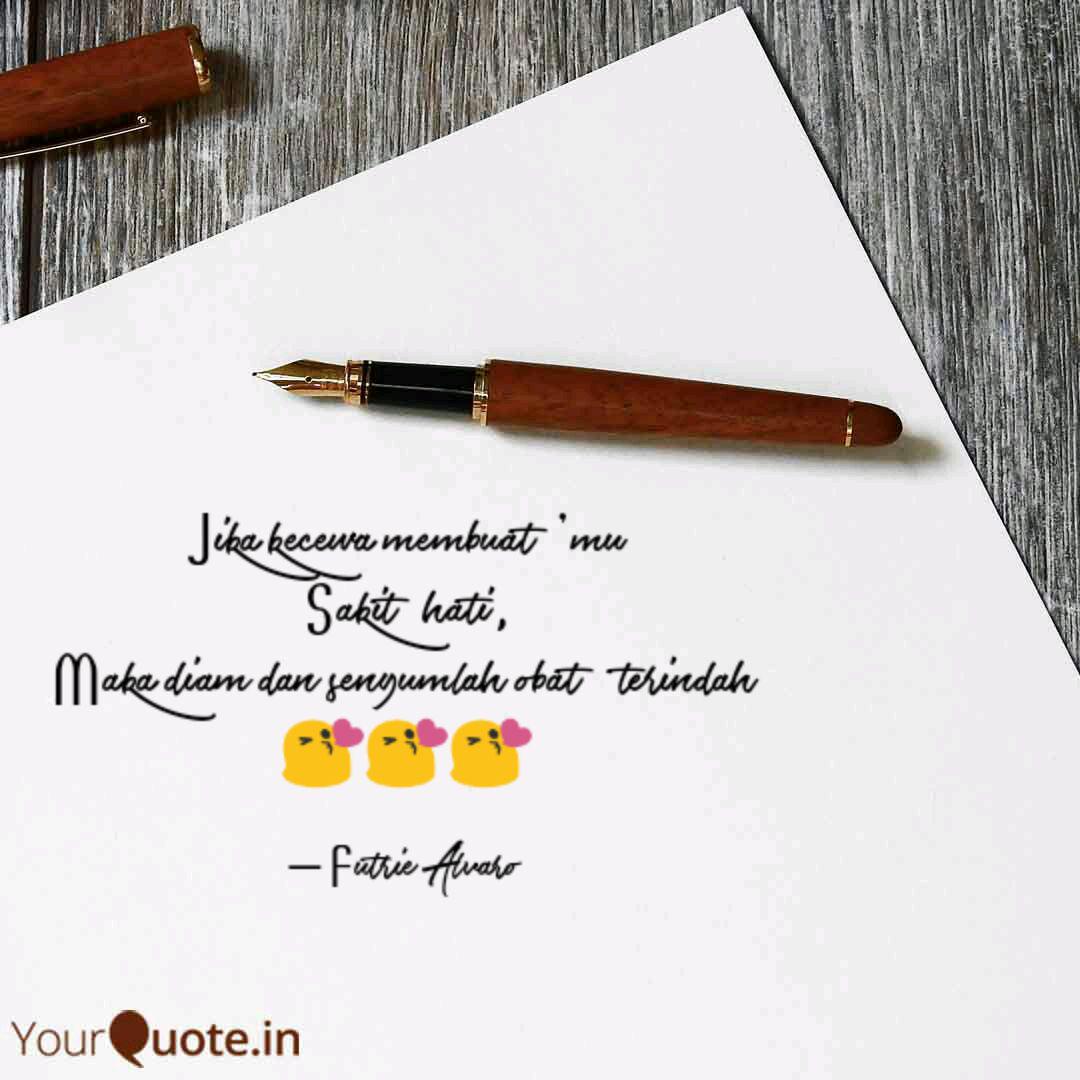 Jika kecewa membuat 'mu
Sakit hati,
Maka diam dan senyumlah obat terindah
😘😘😘
— Futrie Alvaro
YourQuote.in